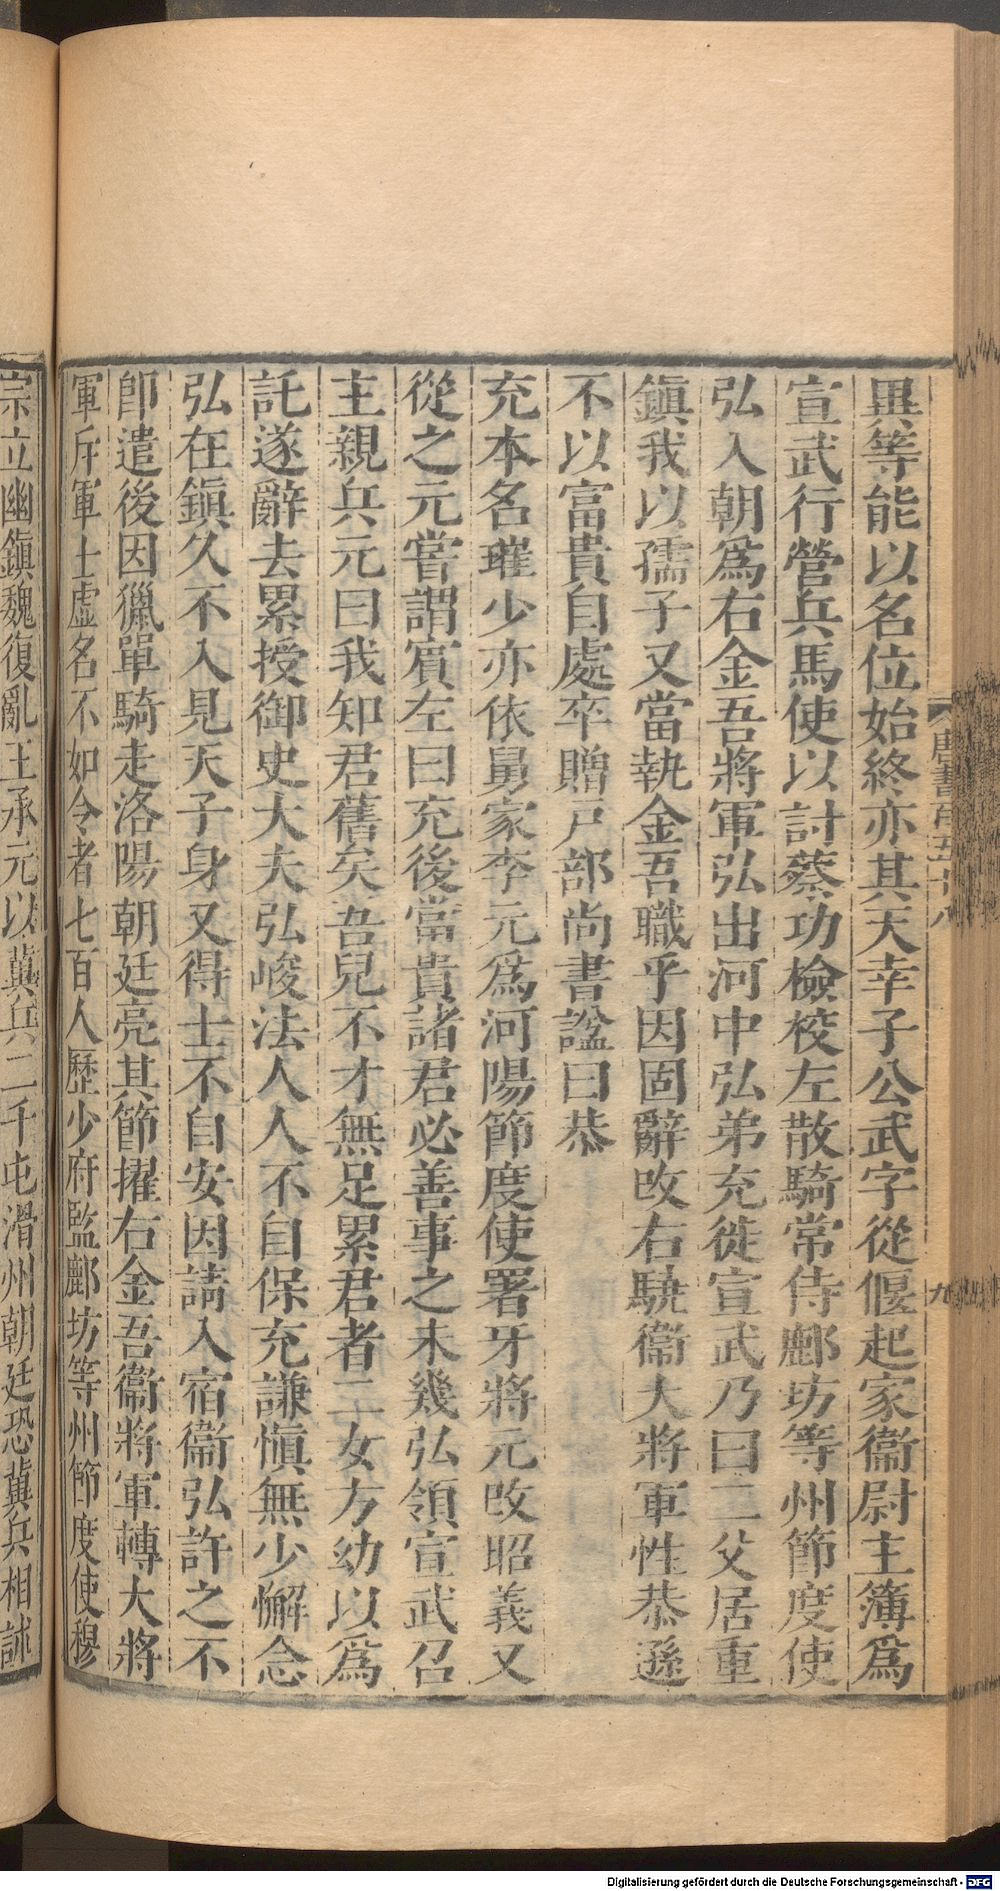 異等能以名位始終亦其天幸子公武字從偃起家衞尉主簿爲
宣武行營兵馬使以討蔡功檢校左散騎常侍鄜坊等州節度使
弘入朝爲右金吾將軍弘出河中弘弟充徙宣武乃曰二父居重
鎭我以孺子又當執金吾職乎因固辭改右驍衞大將軍性恭遜
不以富貴自處卒贈戸部尚書諡曰恭
充本名璀少亦依舅家李元爲河陽節度使署牙將元改昭義又
從之元嘗謂賔左曰充後當貴諸君必善事之未幾弘領宣武召
主親兵元曰我知君舊矣吾兒不才無足累君者二女方幼以爲
託遂辭去累授御史大夫弘峻法人人不自保充謙愼無少懈念
弘在鎭久不入見天子身又得士不自安因請入宿衞弘許之不
卽遣後因獵單騎走洛陽朝廷亮其節擢右金吾衞將軍轉大將
軍斥軍士虛名不如令者七百人歷少府監鄜坊等州節度使穆
宗立幽鎭魏復亂王承元以冀兵二千屯滑州朝廷恐冀兵相訹
唐書百五十八
九
Digitalisierung gefördert durch die Deutsche Forschungsgemeinschaft - DFG